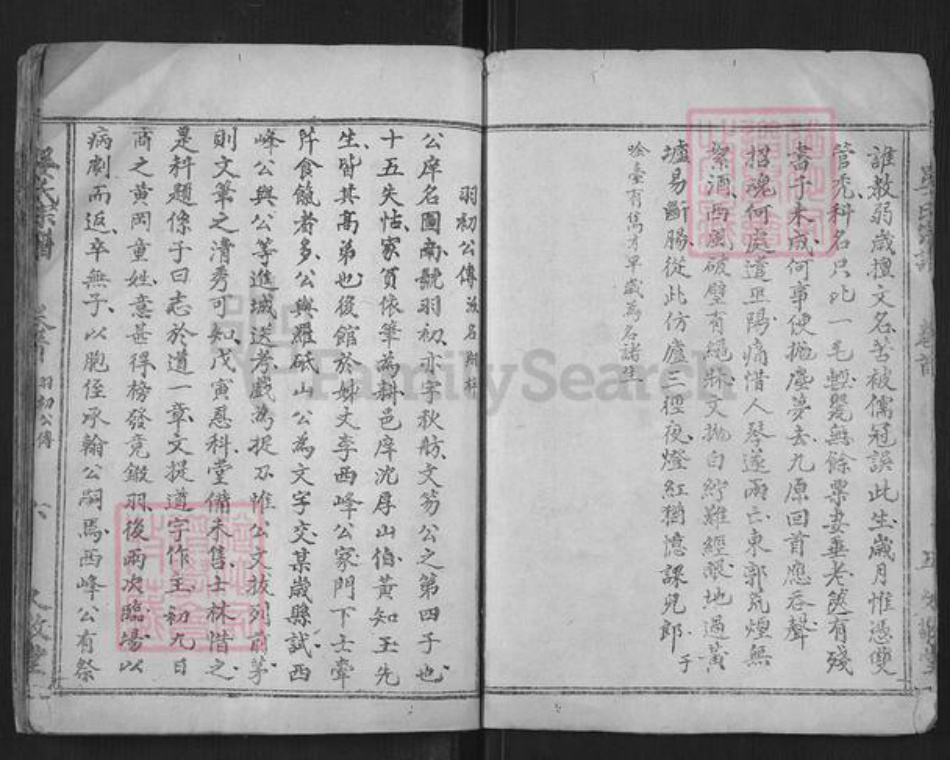 誰教弱歲擅文名苦被儒冠誤此生歲月惟憑雙
管禿科名只此一毛輕甖無餘粟妻垂老篋有殘
書子未成何事便拋塵夢去九原回首應吞聲
招魂何處遣巫陽痛惜人琴遂兩亡東郭荒煙無
絮酒西風破壁有繩牀文拋白紵難經眼地過黃
壚易斷腸從此仿廬三徑夜燈紅猶憶課兒郎 于
喻臺有雋才早歲為名諸生
吳氏宗譜 卷首 五
羽初公傳
公庠名圖南號羽初亦字秋舫文芴公之第四子也
十五失怙家貧依筆為耕邑庠沈厚山伯黃知玉先
生皆其高弟也後館於姊丈李西峰公家門下士牽
阡食餼者多公與羅砥山公為文字交某歲縣試西
峰公與公等進城送考戲為捉刀惟公文拔列前茅
則文筆之清秀可知戊寅恩科堂備未售士林惜之
是科題係子曰志於道一章文提道字作主初九日
商之黃岡童姓意甚得榜發竟鎩羽後兩次臨場以
病劇而返卒無子以胞侄承翰公嗣焉西峰公有祭
吳氏宗譜 卷首 羽初公傳 六
FamilySearch